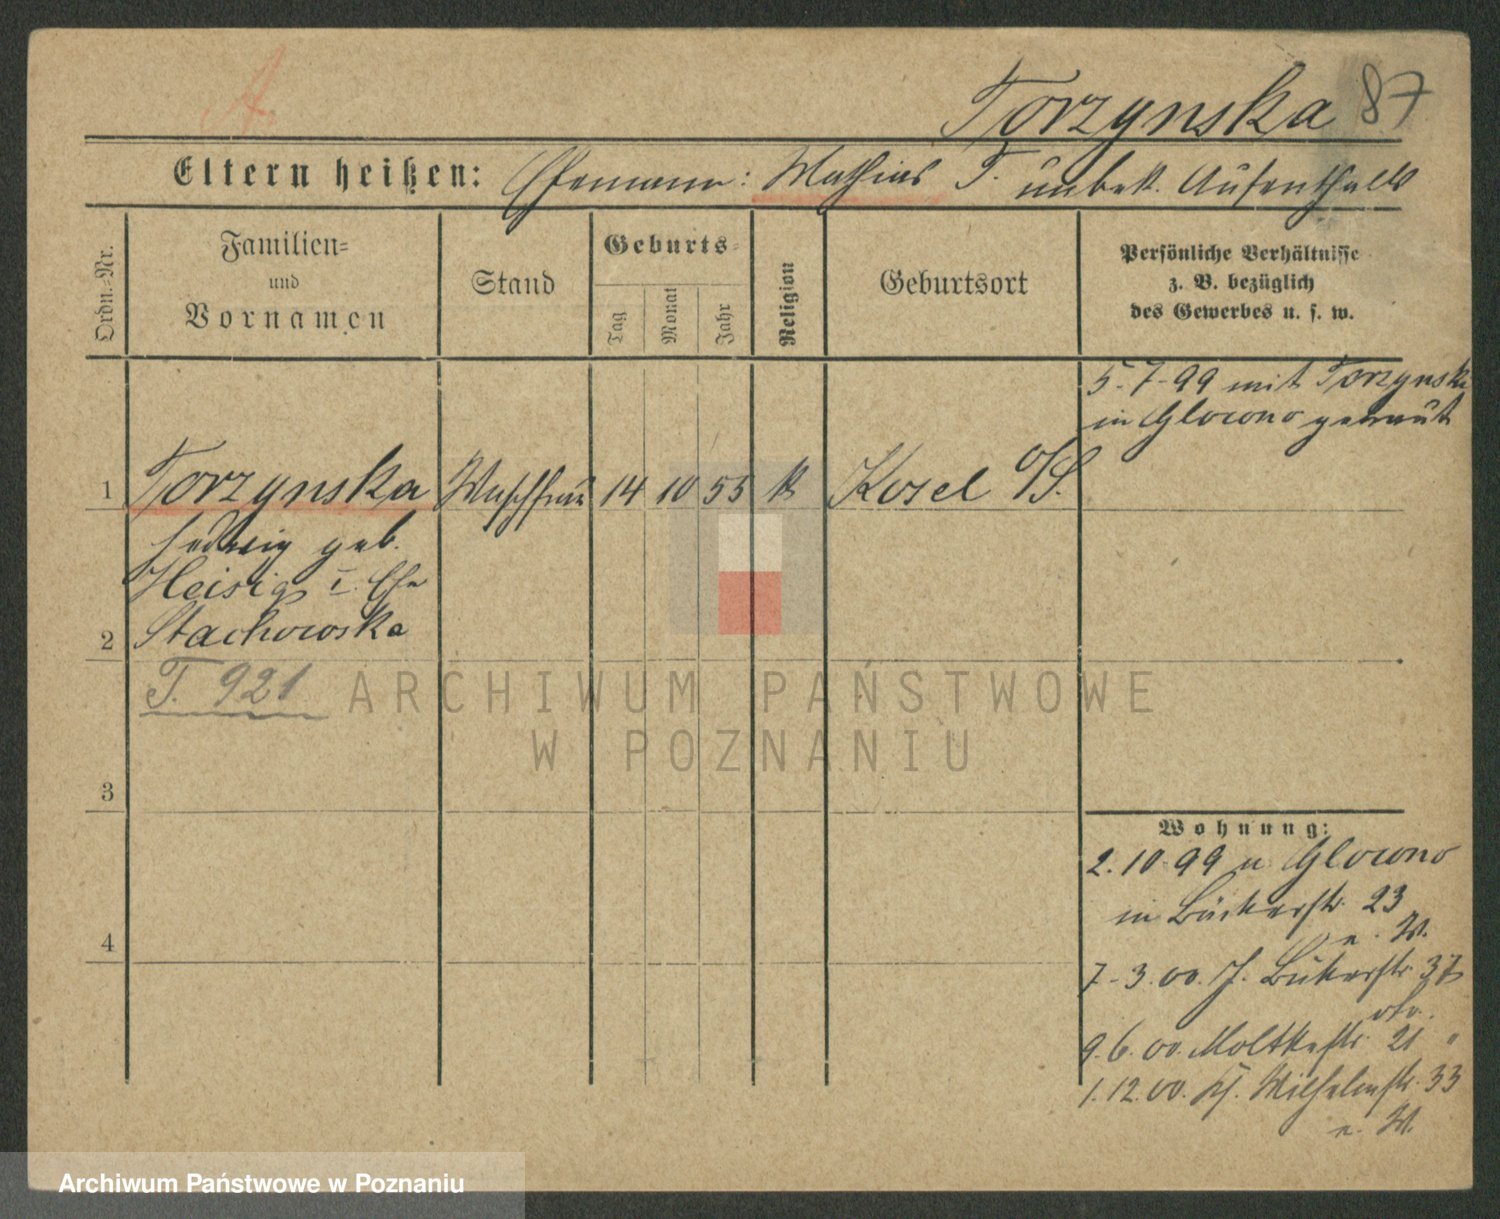 A.
Torzynska 87
Eltern heißen: Ehemann: Mathias T. unbek. Aufenthalts
Ordn.-Nr.
Familien-
und
Vornamen
Stand
Geburts-
Tag
Monat
Jahr
Religion
Geburtsort
Persönliche Verhältnisse
z. B. bezüglich
des Gewerbes u. s. w.
5-7-99 mit Torzynski
in Glowno getraut
1 Torzynska Waschfrau 14 10 55 k Kosel O/S.
Hedwig geb.
Heisig I. Ehe
2 Stachowska
T. 921
3
4
Wohnung:
2.10.99 n Glowno
in Bäckerstr. 23
n. W.
7-3.00. J. Bäckerstr. 37
9.6.00. Moltkestr. 21 "
1.12.00. Wilhelmstr. 33
n. W.
ARCHIWUM PAŃSTWOWE
W POZNANIU
Archiwum Państwowe w Poznaniu